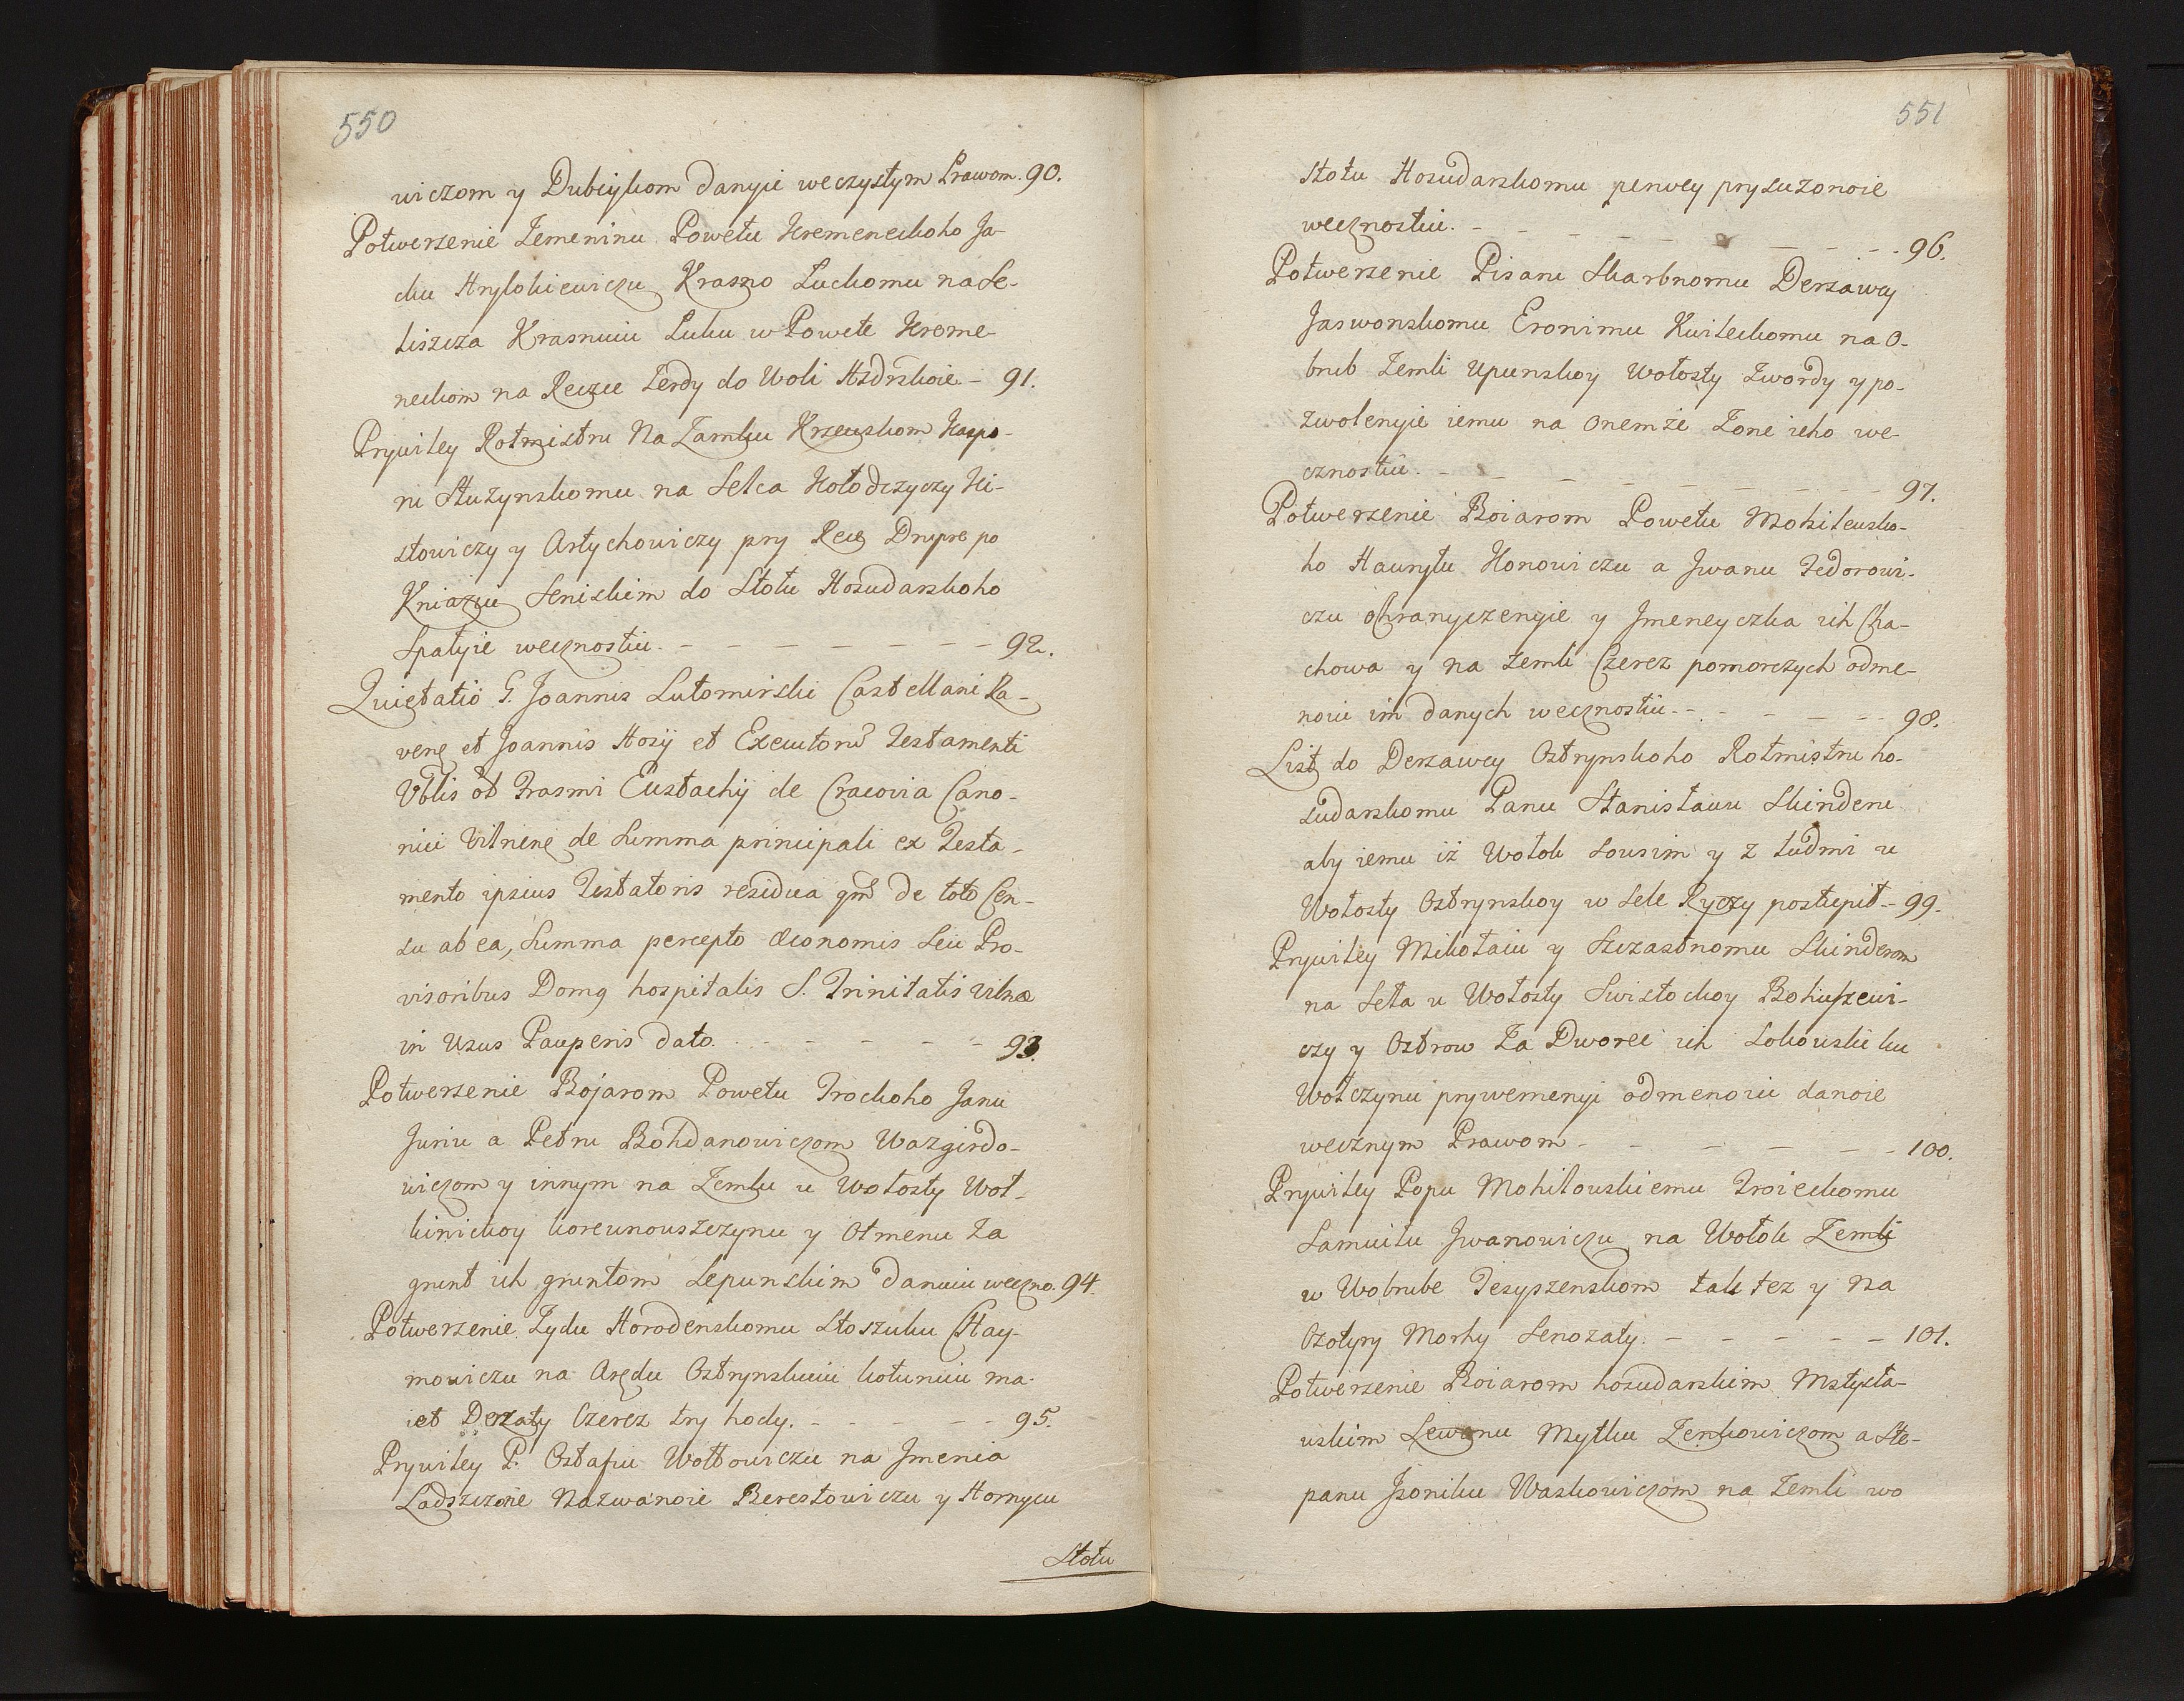 550
wiczom y Dubiykom danyie weczystym Prawom. 90.
Potwerzenie Zemeninu Powetu Kremeneckoho Ja-
cku Hrylokiewiczu Krasno Luckomu na Se-
liszcza Krasnuiu Luku w Powete Kreme-
neckom na Reczce Zerdy do Woli Hsdrskoie. - 91.
Prywiley Rotmistru Na Zamku Krzewskom Kaspo-
ru Stuzynskomu na Selca Hołodczyczy Ki-
stowiczy y Artychowiczy pry Rece Dnypre po
Kniaziu Senskim do Stołu Hosudarskoho
Spatyie wecznostiu. - - - - - - - - 92.
Quietatio G. Joannis Lutomirski Castellani Ra-
vene et Joannis Hosij et Executoru Testamenti
Vblis ob Erasmi Eustachij de Cracovia Cano-
nici Vilnene de Summa principali ex Testa-
mento ipsius Testatoris residua qm de toto Cen-
su ab ea, Summa percepto Œconomis Seu Pro-
visoribus Domq hospitalis S. Trinitatis Vilnæ
in Usus Pauperis dato. - - - - - 93.
Potwerzenie Bojarom Powetu Trockoho Janu
Juriu a Petru Bohdanowiczom Wazgirdo-
wiczom y innym na Zemlu u Wołosty Woł-
kinickoy koreunouszczynu y Otmenu za
grunt ich gruntom Lepunskim danuiu weczno. 94.
Potwerzenie Zydu Horodenskomu Stoszuku CHay-
mowiczu na Arędu Ostrynskuiu kotunuiu ma-
iet Derzaty Czerez try hody. - - - - - 95.
Prywiley P. Ostafiu Wołłowiczu na Jmenia
Ladszczone Nazwanoie Berestowiczu y Hornycu
Stołu
551
Stołu Hosudarskomu perwey prysłuzonoie
wecznostiu. - - - - - - - - - 96.
Potwerzenie Pisaru Skarbnomu Derzawcy
Jaswonskomu Eronimu Kwileckomu na O-
brub Zemli Upunskoy Wołosty Zwordy y po-
zwolenyie iemu na Onemże Zone ieho we-
cznostiu. - - - - - - - - - 97.
Potwerzenie Boiarom Powetu Mohilewsko-
ho Hawryłu Honowiczu a Jwanu Fedorowi-
czu oChranyczenyie y Jmeneyczka ich Cha-
chowa y na zemli Czerez pomorczych odme-
noiu im danych wecznostiu. - - - - - 98.
List do Derzawcy Ostrynskoho Rotmistru ho-
sudarskomu Panu Stanisławu Skinderu
aby iemu iż Wołok Sousim y z ludmi u
Wołosty Ostrynskoy w Sele Ryczy postupił. - 99.
Prywiley Mikołaiu y Szczastnomu Skinderom
na Seła u Wołosty Swisłockoy Bohuszewi-
czy y Ostrow Za Dworec ich Sokowskiku
Wotczynu prywemenyi odmenoiu danoie
wecznym Prawom - - - - - - 100.
Prywiley Popu Mohiłouskiemu Troieckomu
Samuiłu Jwanowiczu na Wołok Zemli
w Wobrube Jesypzenskom tak tez y na
Czotyry Morhy Senozaty. - - - - - 101.
Potwerzenie Boiarom hosudarskim Mstysła-
uskim Lewonu Mytku Zenkowiczom a Ste-
panu Jsoniku Waskowiczom na Zemli wo